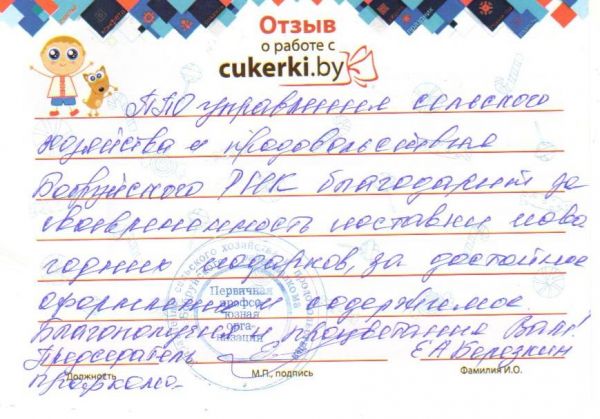 Отзыв
о работе с
cukerki.by
ППО управления сельского
хозяйства и продовольствия
Бобруйского РИК благодарит за
своевременность поставки ново
годних подарков, за достойное
оформление и содержимое.
Благополучия и процветания Вам!
Председатель Е А Березкин
профкома
Должность М.П., подпись Фамилия И.О.
Первичная
профсо
юзная
орга-
низация